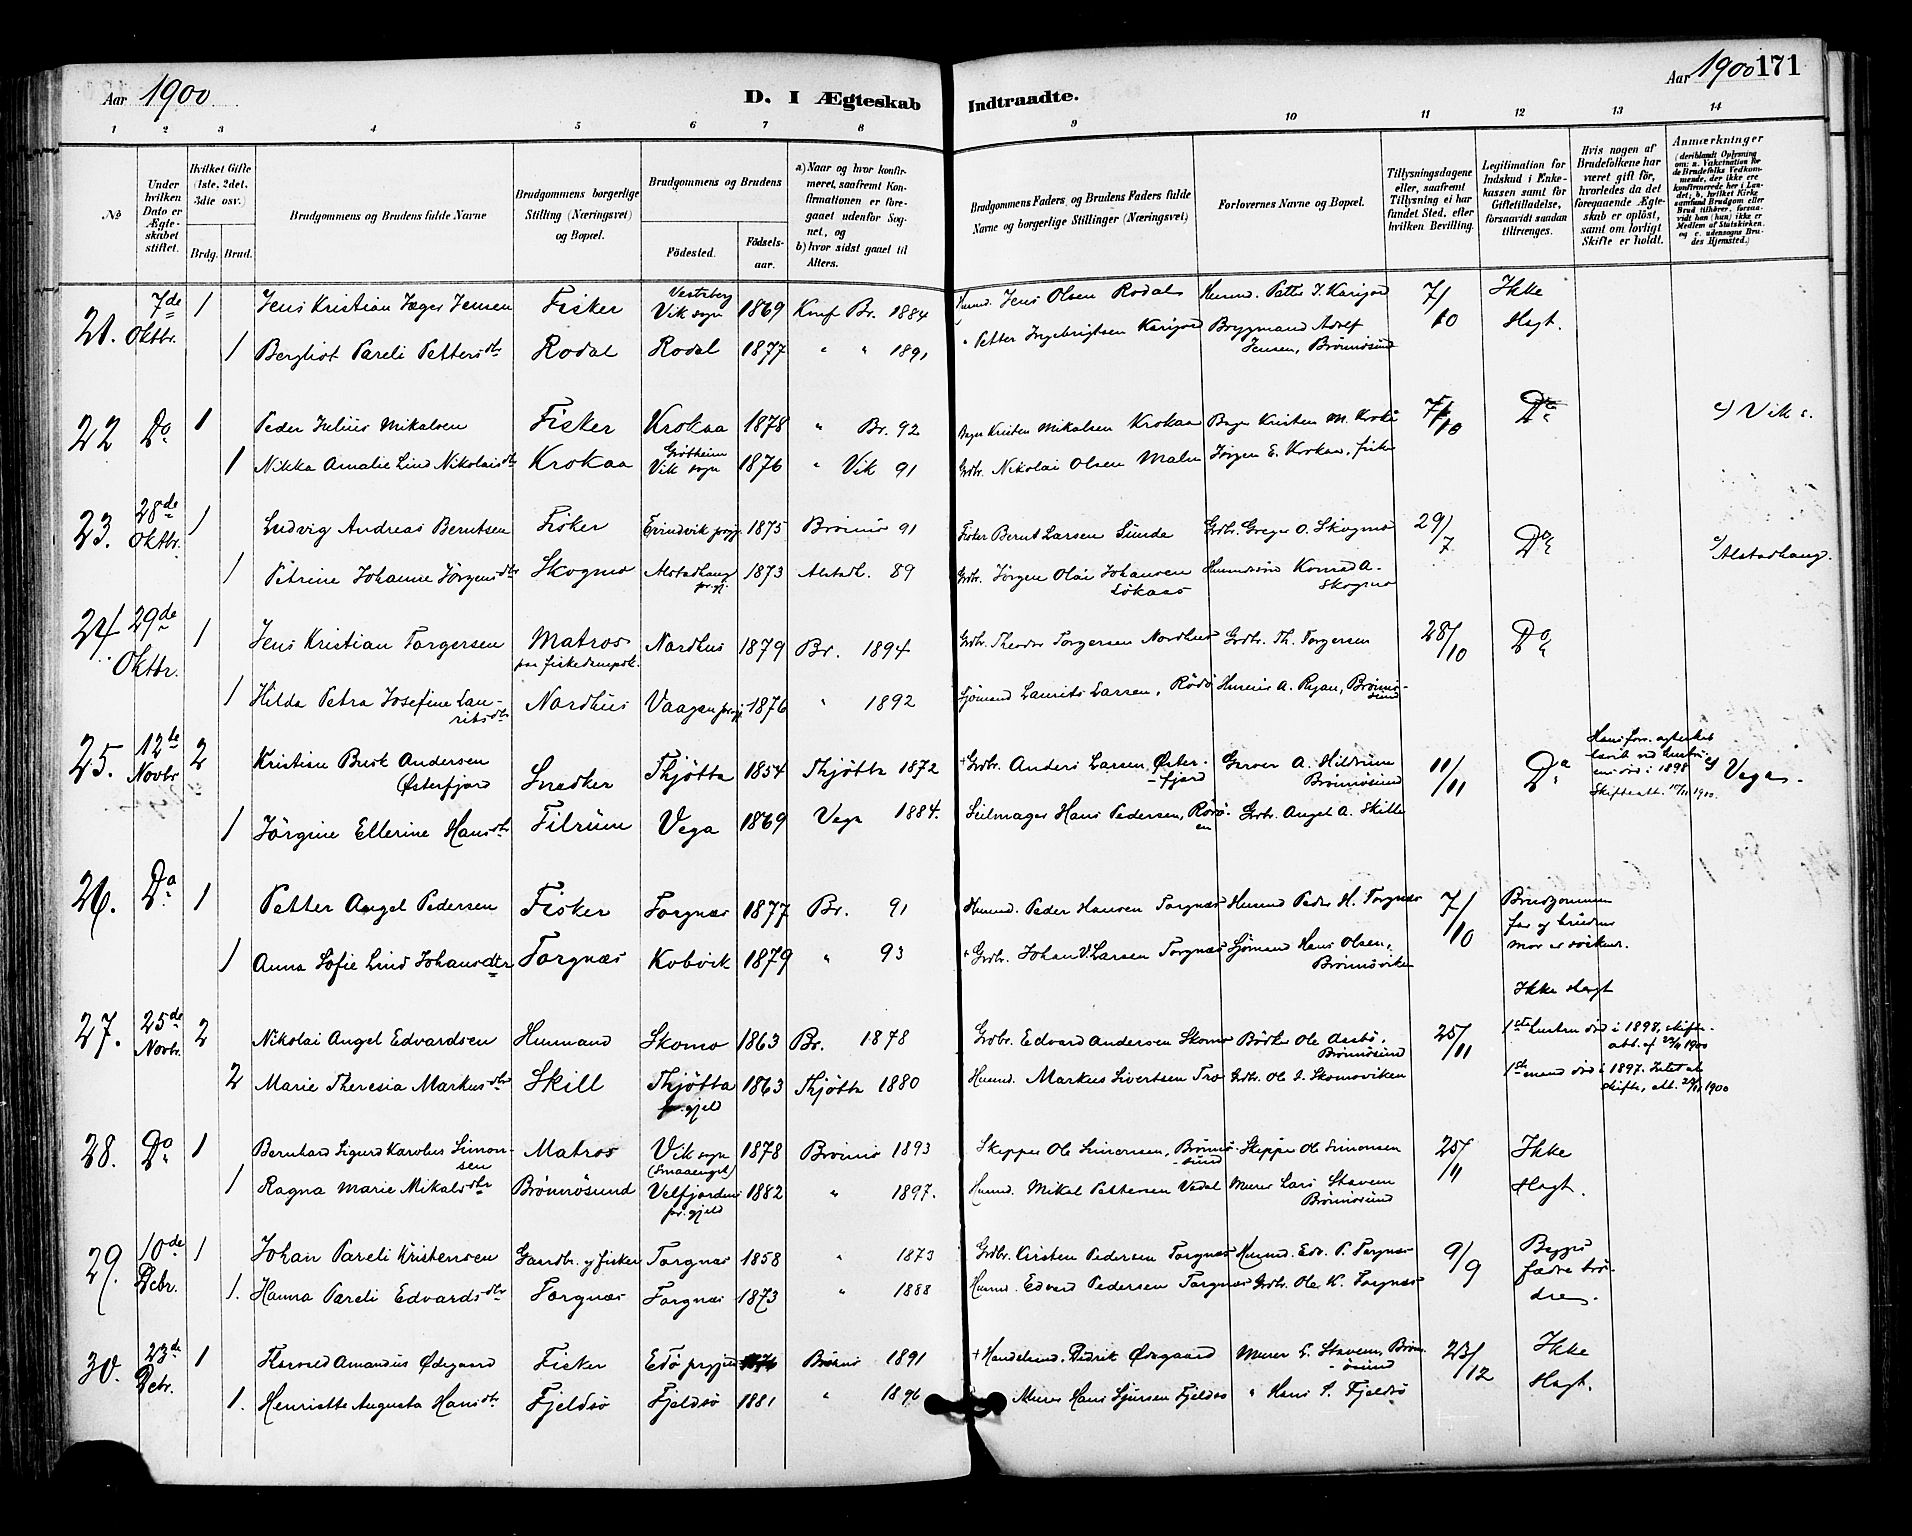 Aar 1900
D. I Ægteskab Indtraadte.
Aar 1900 171
1 2 3 4 5 6 7 8 9 10 11 12 13 14
No
Under hvilken Dato er Ægteskabet stiftet.
Hvilket Gifte (1ste, 2det, 3die osv.)
Brdg. Brud.
Brudgommens og Brudens fulde Navne
Brudgommens borgerlige Stilling (Næringsvei) og Bopæl.
Brudgommens og Brudens
Födested.
Födsels-aar.
a) Naar og hvor konfirmeret, saafremt Konfirmationen er foregaaet udenfor Sognet, og
b) hvor sidst gaaet til Alters.
Brudgommens Faders og Brudens Faders fulde Navne og borgerlige Stillinger (Næringsvei)
Forlovernes Navne og Bopæl.
Tillysningsdagene eller, saafremt Tillysning ei har fundet Sted, efter hvilken Bevilling.
Legitimation for Indskud i Enkekassen samt for Giftetilladelse, forsaavidt saadan tiltrænges.
Hvis nogen af Brudefolkene har været gift för, hvorledes da det foregaaende Ægteskab er oplöst, samt om lovligt Skifte er holdt.
Anmærkninger
(deriblandt Oplysning om: a. Vakcination for de Brudefolks Vedkommende, der ikke ere konfirmerede her i Landet; b. hvilket Kirkesamfund Brudgom eller Brud tilhörer, forsaavidt han (hun) ikke er Medlem af Statskirken, og c. udensogns Brudes Hjemsted.)
21. 7de Oktbr. 1 Jens Kristian Jæger Jensen Fisker Vik sogn 1869 Konf Br. 1884 Jens Olsen Rodal Husmd. Petter J. Karijord 7/10 Ikke
1 Bergliot Pareli Pettersdtr Rodal Rodal 1877 " " 1891 " Petter Ingebrigtsen Karijord Brygmand Adolf Jensen, Brönnösund Slægt.
22 Do 1 Peder Julius Mikalsen Fisker Krokaa 1878 " Br. 92 Kristen Mikalsen Krokaa Kristen M. Krokå 7/10 Do c) Vik s.
1 Nikka Amalie Lind Nikolaisdtr Krokaa Vik sogn 1876 " Vik 91 Grdbr. Nikolai Olsen Malm Jörgen E. Krokaa, fisker
23. 28de Oktbr. 1 Ludvig Andreas Berntsen Fisker Evindvik prgj. 1875 Brönnö 91 Fisker Bernt Larsen Sunda Grdbr. Greger O. Skogmo 29/7 Do c) Alstadhaug.
1 Petrine Johanne Jörgensdtr Skogmo Alstadhaug prgj. 1873 Alstadh. 89 Grdbr. Jörgen Olai Johansen Sökaas Konrad A. Skogmo
24 29de Oktbr. 1 Jens Kristian Torgersen Matros Nordhus 1879 Br. 1894 Grdbr. Theodor Torgersen Nordhus Grdbr. Th. Torgersen 28/10 Do
1 Hilda Petra Josefine Lauritsdtr Nordhus Vaagan prgj. 1876 " 1892 Sjömand Laurits Larsen, Rödö A. Ryan, Brönnösund
25. 12te Novbr 2 Kristian Buck Andersen Österfjord Snedker Thjötta 1854 Thjötta 1872 + Grdbr. Anders Larsen, Österfjord Garver A. Hildrum Brönnösund 11/11 Do död i 1898 Skifteatt. 10/11 1900. c) Vega.
1 Jörgine Ellerine Hansdtr Filrum Vega 1869 Vega 1884. Seilmager Hans Pedersen, Rörö Grdbr. Angel A. Skille
26. Do 1 Petter Angel Pedersen Fisker Torgnæs 1877 Br. 91 Husmd. Peder Hansen Torgnæs Husmd Peder H. Torgnæs 7/10 Brudgommens far og brudens mor er söskend.
1 Anna Sofie Lind Johansdtr Torgnæs Kobvik 1879 " 93 + Grdbr. Johan V. Larsen Torgnæs Sjömand Hans Olsen, Brönnösviken
Ikke Slægt
27. 25de Novbr. 2 Nikolai Angel Edvardsen Husmand Skomo 1863 Br. 1878 Grdbr. Edvard Andersen Skomo Bödker Ole Aasbö, Brönnösund 25/11 1ste hustru död i 1898, skifteatt. af 22/11 1900
2 Marie Theresia Markusdtr Skill Thjötta pr.gjeld 1863 Thjötta 1880 Husmd. Markus Sivertsen Tro Grdbr. Ole J. Skomoviken 1ste mand död i 1897. Intet at skifte, att. 1900
28. Do 1 Bernhard Sigurd Karolius Simonsen Matros Vik sogn (Smaaenget) 1878 Brönnö 1893 Skipper Ole Simonsen, Brönnösund Skipper Ole Simonsen 25/11 Ikke
1 Ragna Marie Mikalsdtr Brönnösund Velfjordens pr.gjeld 1882 " 1897. Husmd. Mikal Pettersen Vedal Murer Lars Stavem Brönnösund Slægt.
29. 10de Debr. 1 Johan Pareli Kristensen Gaardbr. og fisker Torgnæs 1858 " 1873 Grdbr. Kristen Pedersen Torgnæs Husmd. Edv. P. Torgnæs 9/9 Begges fædre brödre.
1. Hanna Pareli Edvardsdtr Torgnæs Torgnæs 1873 " 1888 Husmd. Edvard Pedersen Torgnæs Grdbr. Ole K. Torgnæs
30. 23de Debr. 1 Amandus Ödegaard Fisker Edö 1876 Brönnö 1891 + Handelsmd. Didrik Ödegaard Murer L. Stavem, Brönnösund 23/12 Ikke
1. Henriette Augusta Hansdtr Fjeldsö Fjeldsö 1881 " 1896 Murer Hans Sjursen Fjeldsö " Hans S. Fjeldsö Slægt.